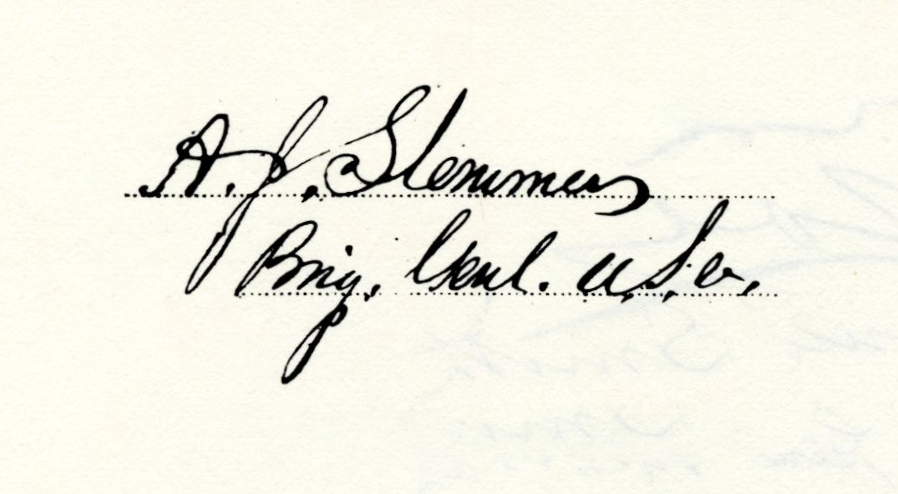 A. J. Slemmer
Brig. Genl. U.S.V.